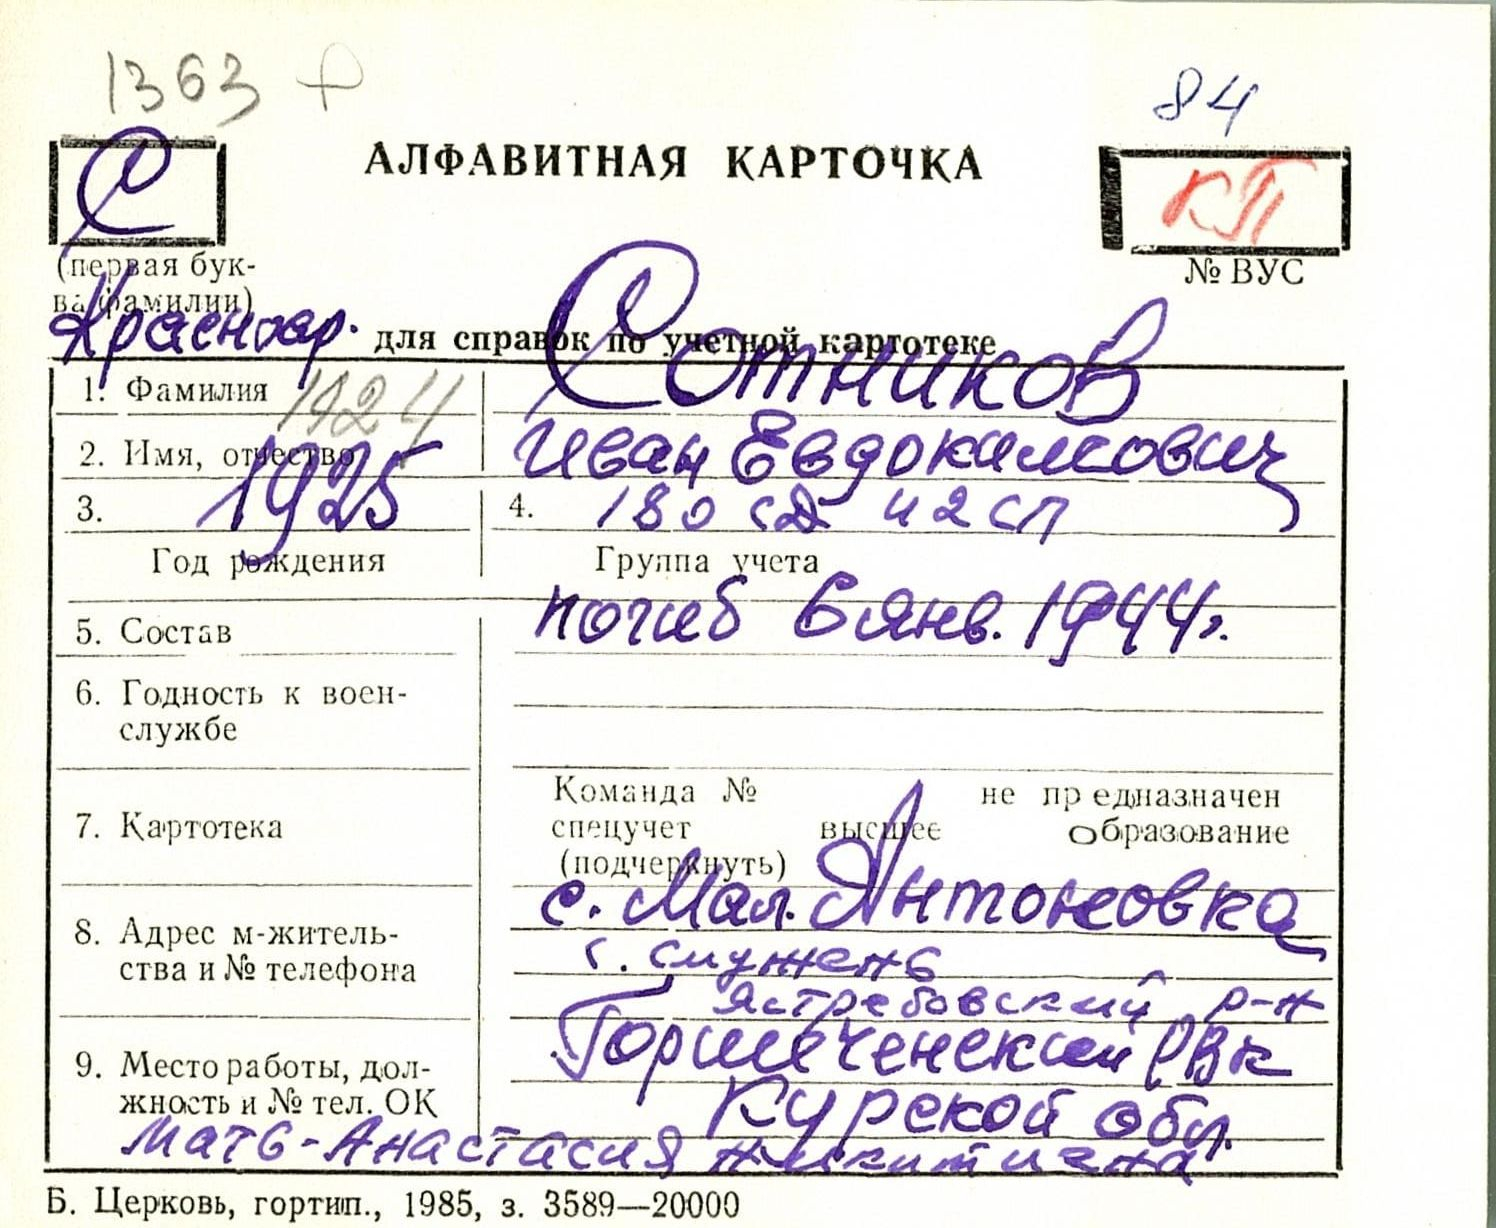 1363
84
С
АЛФАВИТНАЯ КАРТОЧКА
КП
(первая бук-
ва фамилии)
№ ВУС
Красноар. для справок по учетной картотеке
1. Фамилия
Сотников
1924
2. Имя, отчество
Иван Евдокимович
3. 1925
4. 180 сД 42 сп
Год рождения
Группа учета
5. Состав
погиб 6 янв. 1944г.
6. Годность к воен-
службе
7. Картотека
Команда № не предназначен
спецучет высшее образование
(подчеркнуть)
8. Адрес м-житель-
ства и № телефона
с. Мал. Антоновка
Ястребовский р-н
9. Место работы, дол-
жность и № тел. ОК
Горшеченский РВК
Курской обл.
Мать-Анастасия Никитична
Б. Церковь, гортип., 1985, з. 3589—20000